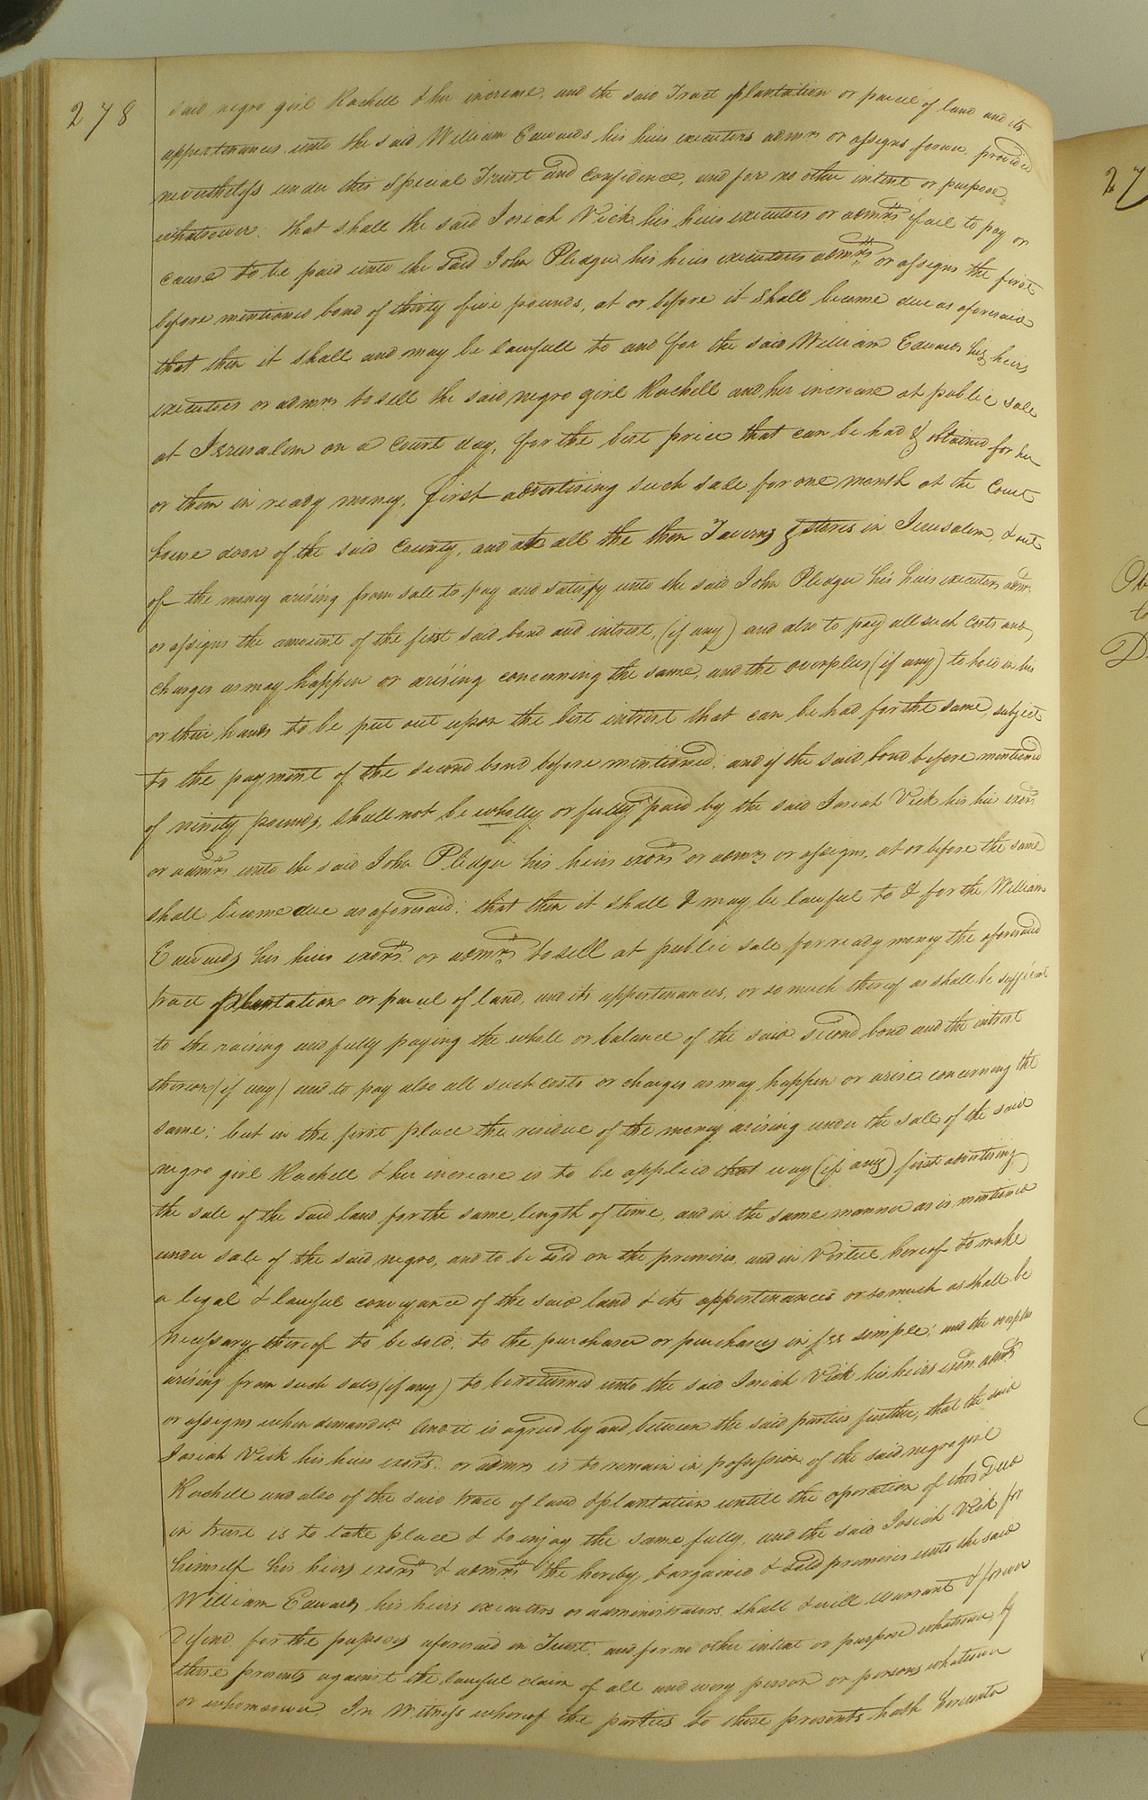 278
said negro girl Rachell & her increase, and the said Tract plantation or parcel of land and its
appertenances unto the said William Edwards his heirs executors admrs or assigns forever provided
nevertheless under this Special Trust and confidence, and for no other intent or purpose
whatsoever. that shall the said Josiah Vick his heirs executors or admrs fail to pay or
cause to be paid unto the said John Pledger his heirs executors admrs or assigns the first
before mentioned bond of thirty five pounds, at or before it shall become due as aforesaid
that then it shall and may be lawfull to and for the said William Edwards his heirs
executors or admrs to sell the said negro girl Rachell and her increase at public sale
at Jerusalem on a Court day, for the best price that can be had & obtained for her
or them in ready money, first advertising such sale for one month at the Court
house door of the said County, and at all the then Taverns & stores in Jerusalem, & out
of the money arising from sale to pay and satisfy unto the said John Pledger his heirs executors admrs
or assigns the amount of the first said bond and intrest, (if any) and also to pay all such costs and
charges as may happen or arising concerning the same, and the overplus (if any) to hold in his
or their hands to be put out upon the best intrest that can be had for the same, subject
to the payment of the second bond before mentioned; and if the said bond before mentioned
of ninety pounds shall not be wholly or fully paid by the said Josiah Vick his heirs exors
or admrs unto the said John Pledger his heirs exors or admrs or assigns, at or before the same
shall become due as aforesaid; that then it shall & may be lawful to & for the William
Edwards his heirs exors or admrs to sell at public sale for ready money the aforesaid
tract plantation or parcel of land, and its appertenances, or so much thereof as shall be sufficient
to the raising and fully paying the whole or balance of the said second bond and the intrest
thereon (if any) and to pay also all such costs or charges as may happen or arise concerning the
same; but in the first place the residue of the money arising under the sale of the said
negro girl Rachell & her increase is to be applied that way (if any) first advertising
the sale of the said land for the same length of time, and in the same manner as is mentioned
under sale of the said negro, and to be sold on the premises, and in Virtue hereof to make
a legal & lawful conveyance of the said land & its appertenances or so much as shall be
necessary thereof to be sold; to the purchaser or purchasers in fee simple; and the overplus
arising from such sales (if any) to be returned unto the said Josiah Vick his heirs exors admrs
or assigns when demanded. And it is agreed by and between the said parties further, that the said
Josiah Vick his heirs exors. or admrs is to remain in possession of the said negro girl
Rachell and also of the said tract of land & plantation untill the operation of this Deed
in trust is to take place & to enjoy the same fully, and the said Josiah Vick for
himself his heirs exors & admrs the hereby bargained & sold premises unto the said
William Edwards his heirs executors or administrators shall & will warrant & forever
defend for the purposes aforesaid in Trust, and for no other intent or purpose whatsoever by
these presents against the lawful claim of all and every person or persons whatsoever
or whomsoever In Witness whereof the parties to these presents hath hereunto
27